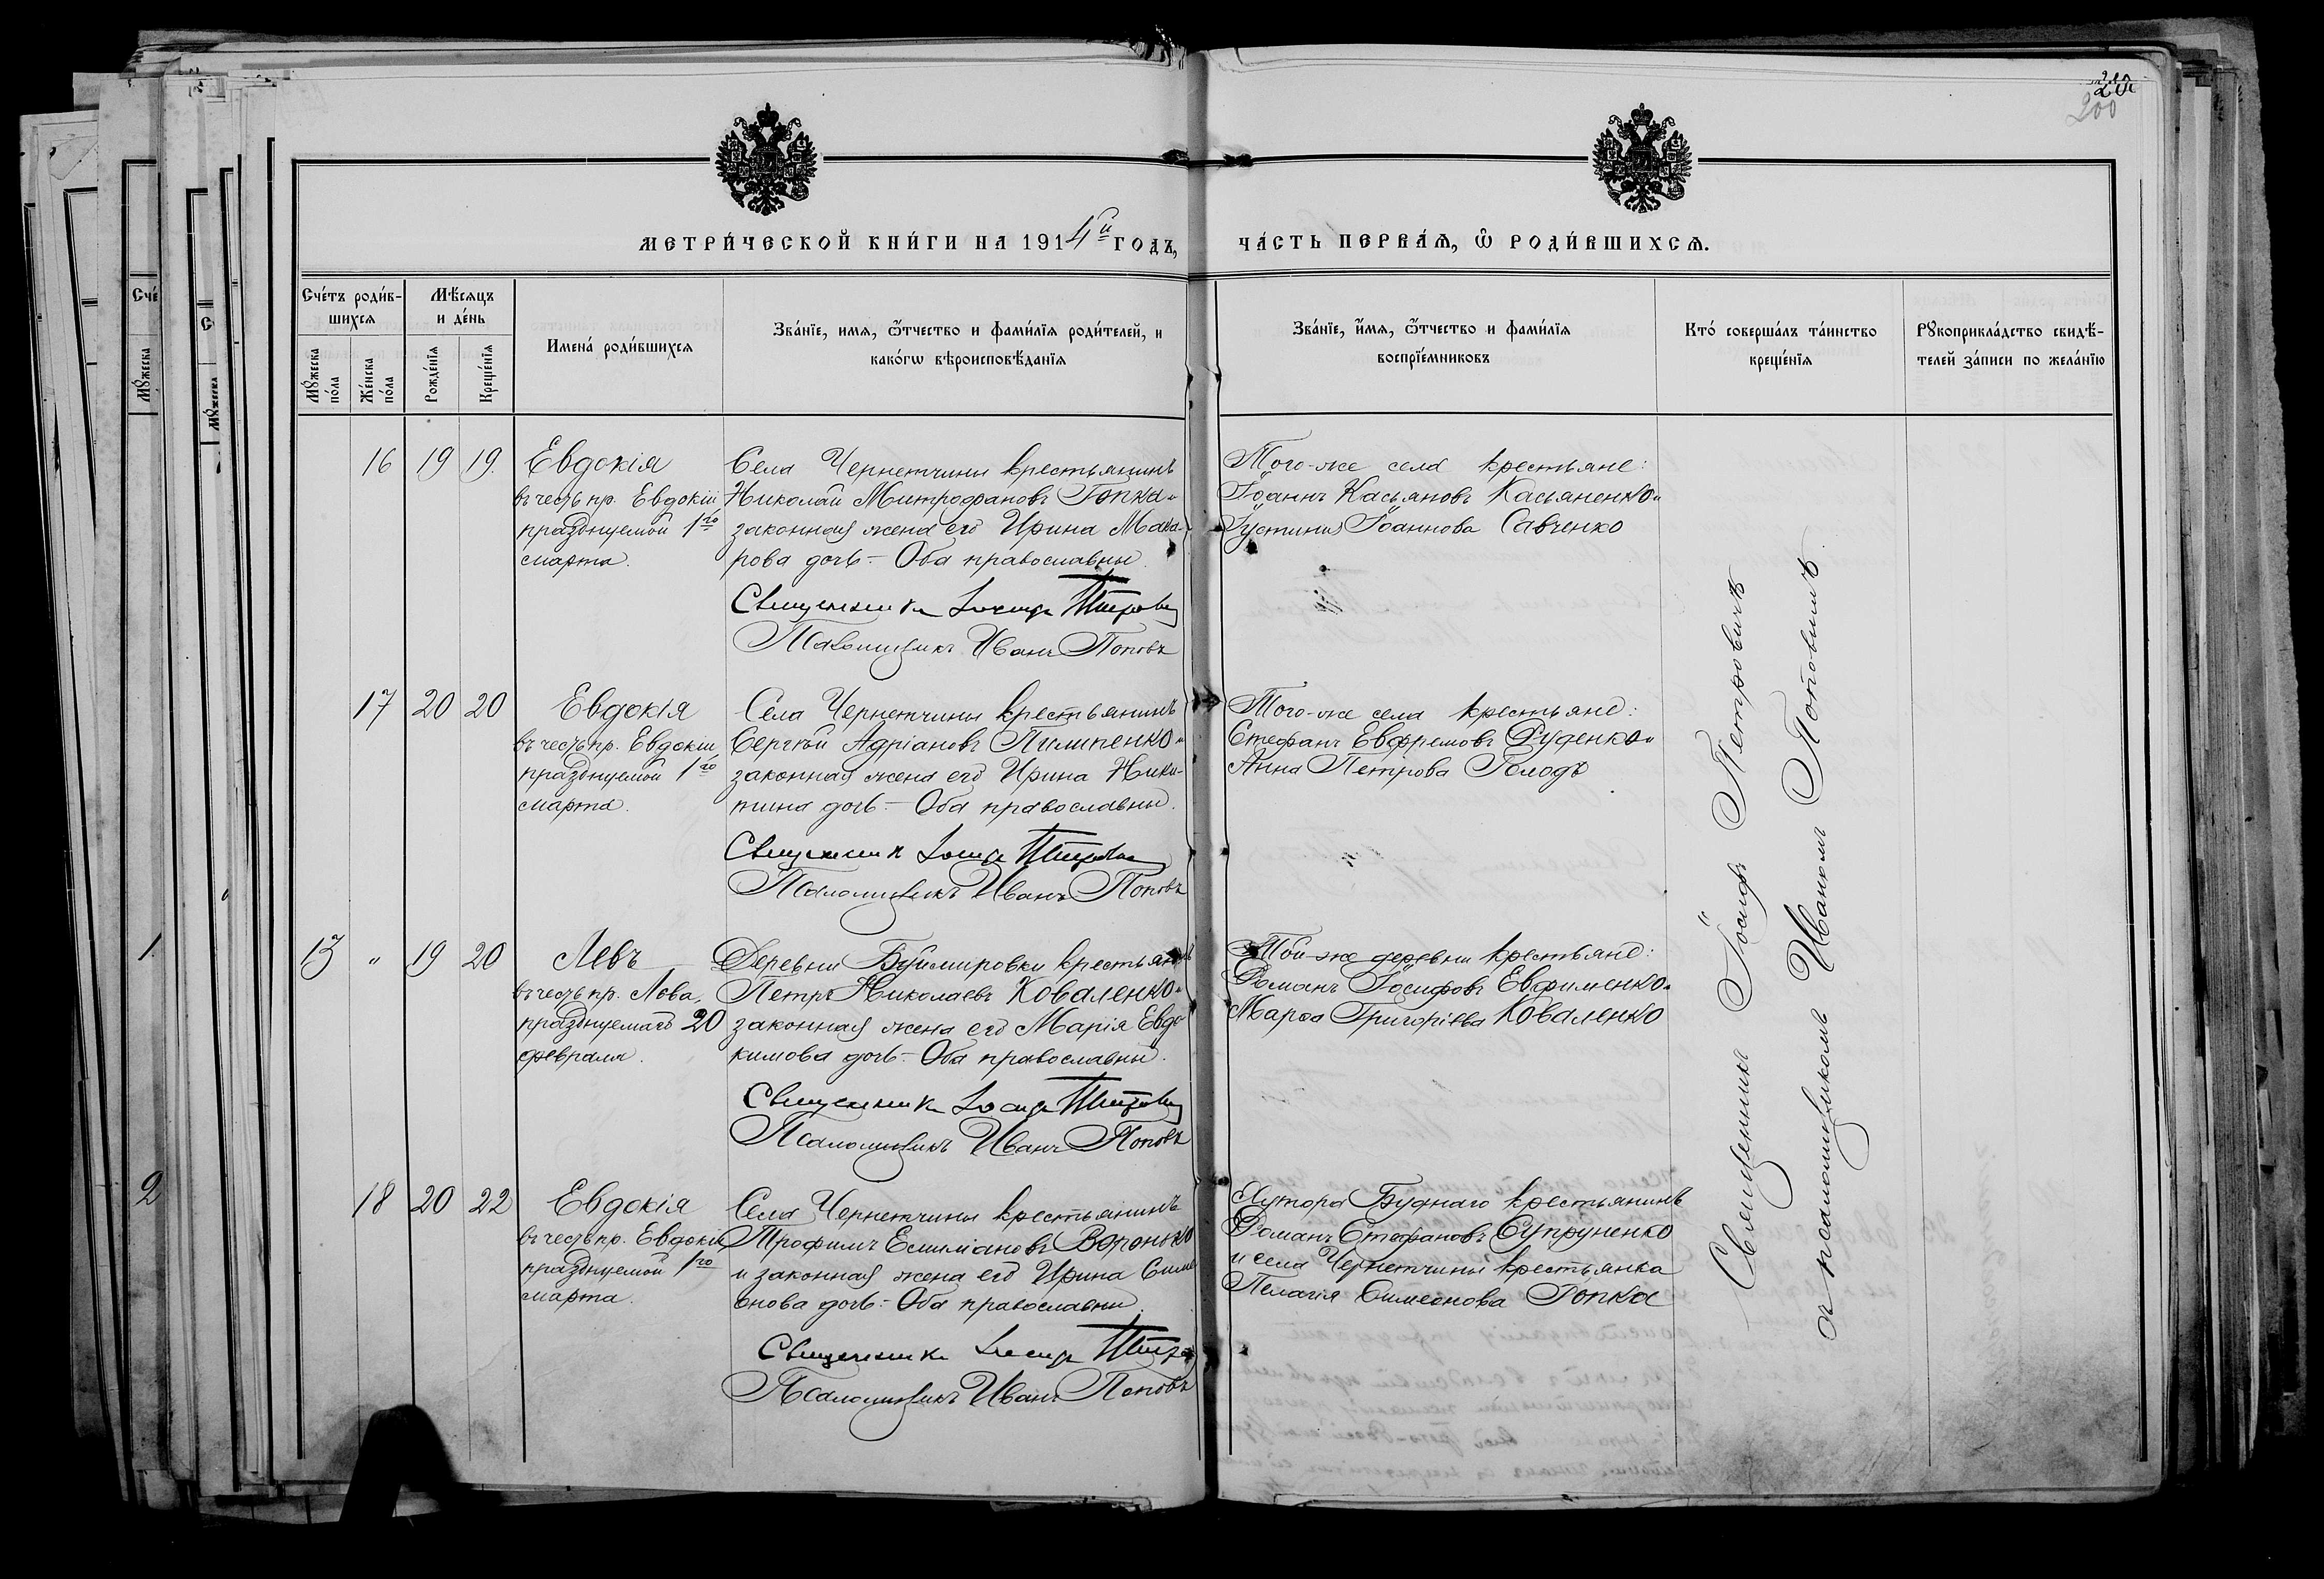 200
МЕТРИ́ЧЕСКОЙ КНИ́ГИ НА 1914й ГОДЪ,
ЧА́СТЬ ПЕРВА́Ѧ, Ѽ РОДИ́ВШИХСѦ.
Сче́тъ роди́в-
шихсѧ
Мѣ́сѧцъ
и де́нь
Мꙋ́жеска по́ла
Же́нска по́ла
Рожде́нїѧ
Креще́нїѧ
Имена́ роди́вшихсѧ
Зва́нїе, имѧ, ѻ҆́тчество и фами́лїѧ роди́телей, и
како́гѡ вѣроисповѣ́данїѧ
Зва́нїе, и҆́мѧ, ѻ҆́тчество и фами́лїѧ
воспрїе́мниковъ
Кто́ соверша́лъ та́инство
креще́нїѧ
Рꙋкоприкла́дство свидѣ́-
телей за́писи по жела́нїю
16 19 19.
Евдокія
въ честь пр. Евдокіи
празднуемой 1го
марта.
Села Чернетчины крестьянинъ
Николай Митрофановъ Гопка и
законная жена его Ирина Мака-
рова дочь - Оба православны.
Священникъ Іосифъ Петровичъ
Псаломщикъ Иванъ Поповъ
Того-же села крестьяне:
Іоаннъ Касьяновъ Касьяненко и
Іустинія Іоаннова Савченко
17 20 20
Евдокія
въ честь пр. Евдокіи
празднуемой 1го
марта.
Села Чернетчины крестьянинъ
Сергѣй Адріановъ Пилипенко и
законная жена его Ирина Ники-
тина дочь - Оба православны.
Священникъ Іосифъ Петровичъ
Псаломщикъ Иванъ Поповъ
Того-же села крестьяне:
Стефанъ Евфремовъ Руденко и
Анна Петрова Голодъ
13 " 19 20
Левъ
въ честь пр. Льва,
празднуемаго 20
февраля.
Деревни Буймировки крестьянинъ
Петръ Николаевъ Коваленко и
законная жена его Марія Евдо
кимова дочь - Оба православны.
Священникъ Іосифъ Петровичъ
Псаломщикъ Иванъ Поповъ
Той-же деревни крестьяне:
Романъ Іосифовъ Евфименко и
Марѳа Григоріева Коваленко
18 20 22
Евдокія
въ честь пр. Евдокіи
празднуемой 1го
марта.
Села Чернетчины крестьянинъ
Трофимъ Воронько
и законная жена его Ирина Симе
онова дочь - Оба православны.
Священникъ Іосифъ
Псаломщикъ Иванъ Поповъ
Хутора Буднаго крестьянинъ
Романъ Стефановъ Супруненко
и села Чернетчины крестьянка
Пелагія Симеонова Гопка
Священникъ Іосифъ Петровичъ
съ псаломщикомъ Иваномъ Поповымъ.
Сче
Мꙋ́жеска
1.
2